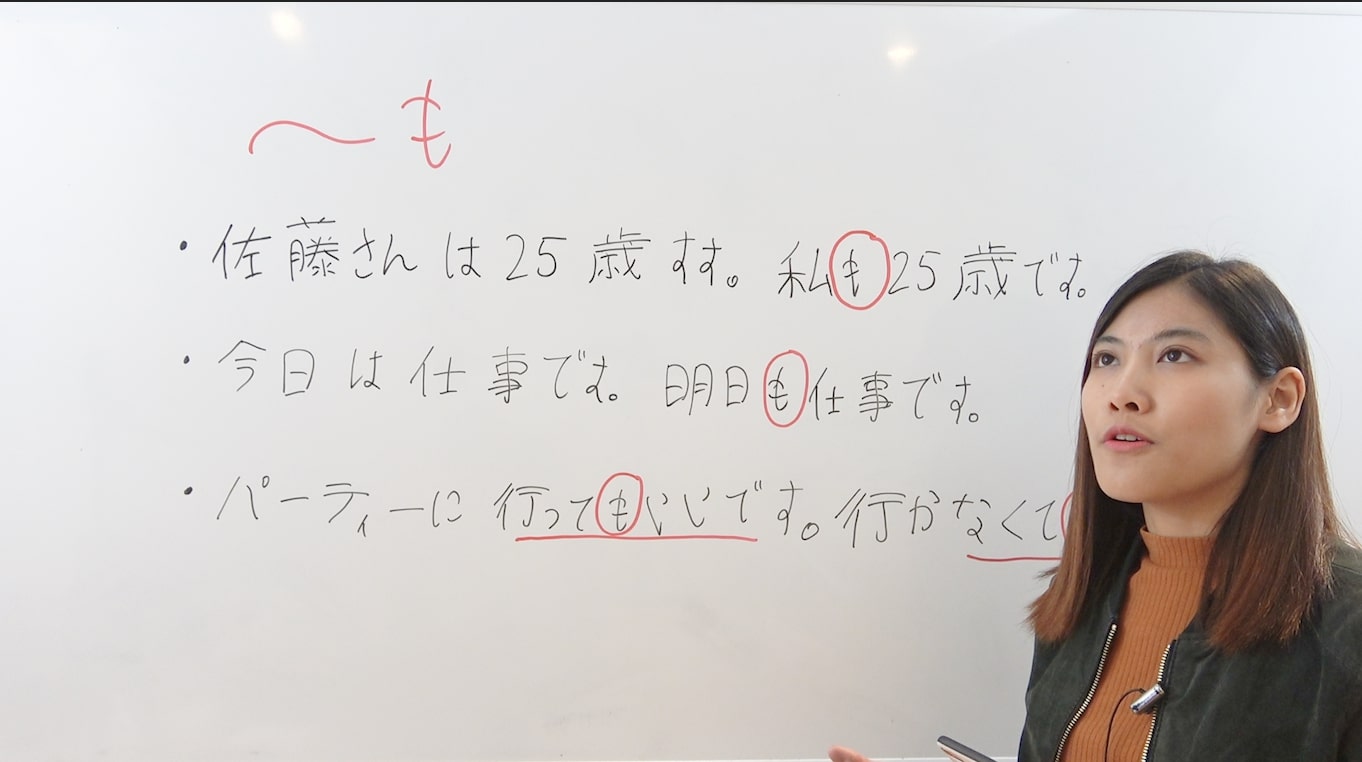 〜も
・佐藤さんは25歳すす。私も25歳です。
・今日は仕事です。明日も仕事です。
・パーティーに行ってもいいです。行かなくて